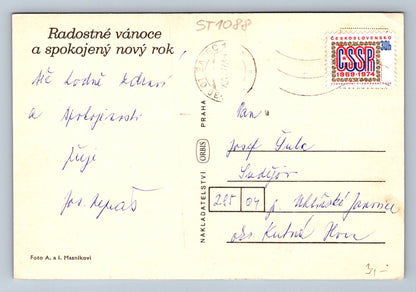 ST1088
Radostné vánoce
a spokojený nový rok
hodně zdraví
a spokojenosti
přeje
Jos.
Foto A. a I. Masníkovi
NAKLADATELSTVÍ ORBIS PRAHA
ČESKOSLOVENSKO
30h
ČSSR
1969-1974
Pan
Josef
285 04 p. Uhlířské Janovice
okr. Kutná Hora
3,-